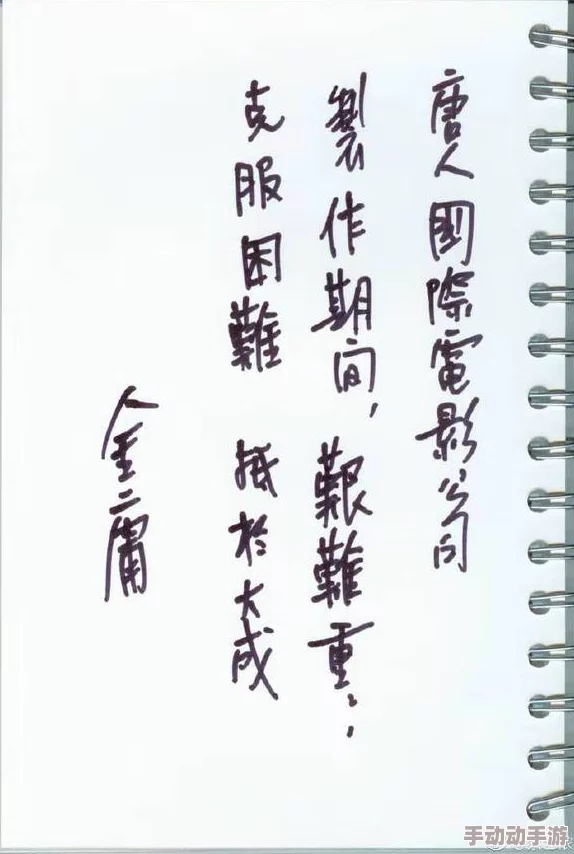 唐人國際電影公司
製作期间，艱難重重，
克服困難 抵於大成
金庸
手动动手游